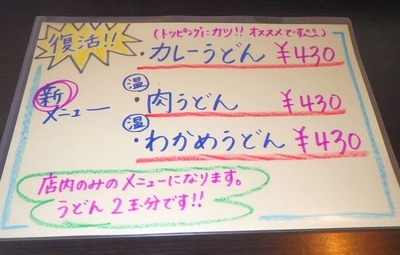 復活!!
(トッピングにカツ!! オススメです^^)
・カレーうどん ¥430
新メニュー
温
・肉うどん ¥430
温
・わかめうどん ¥430
店内のみのメニューになります。
うどん2玉分です!!